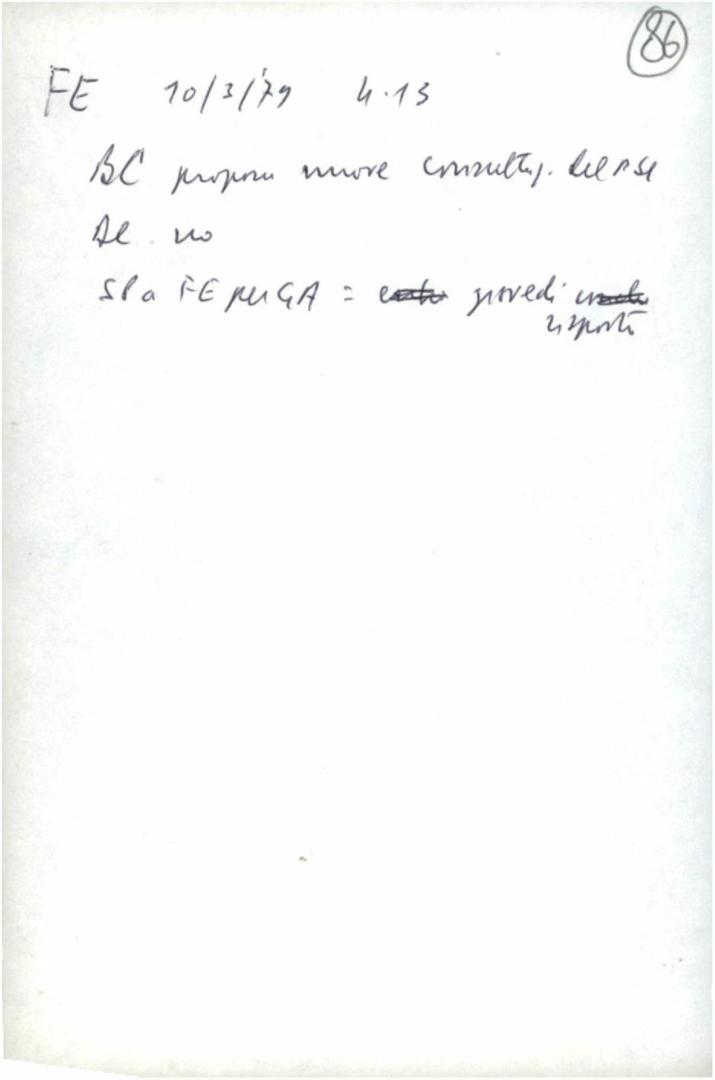 86
FE 10/3/79 4.13
BC propone nuove consultaz.
AC no
SP a FE per GA = giovedì
risposta